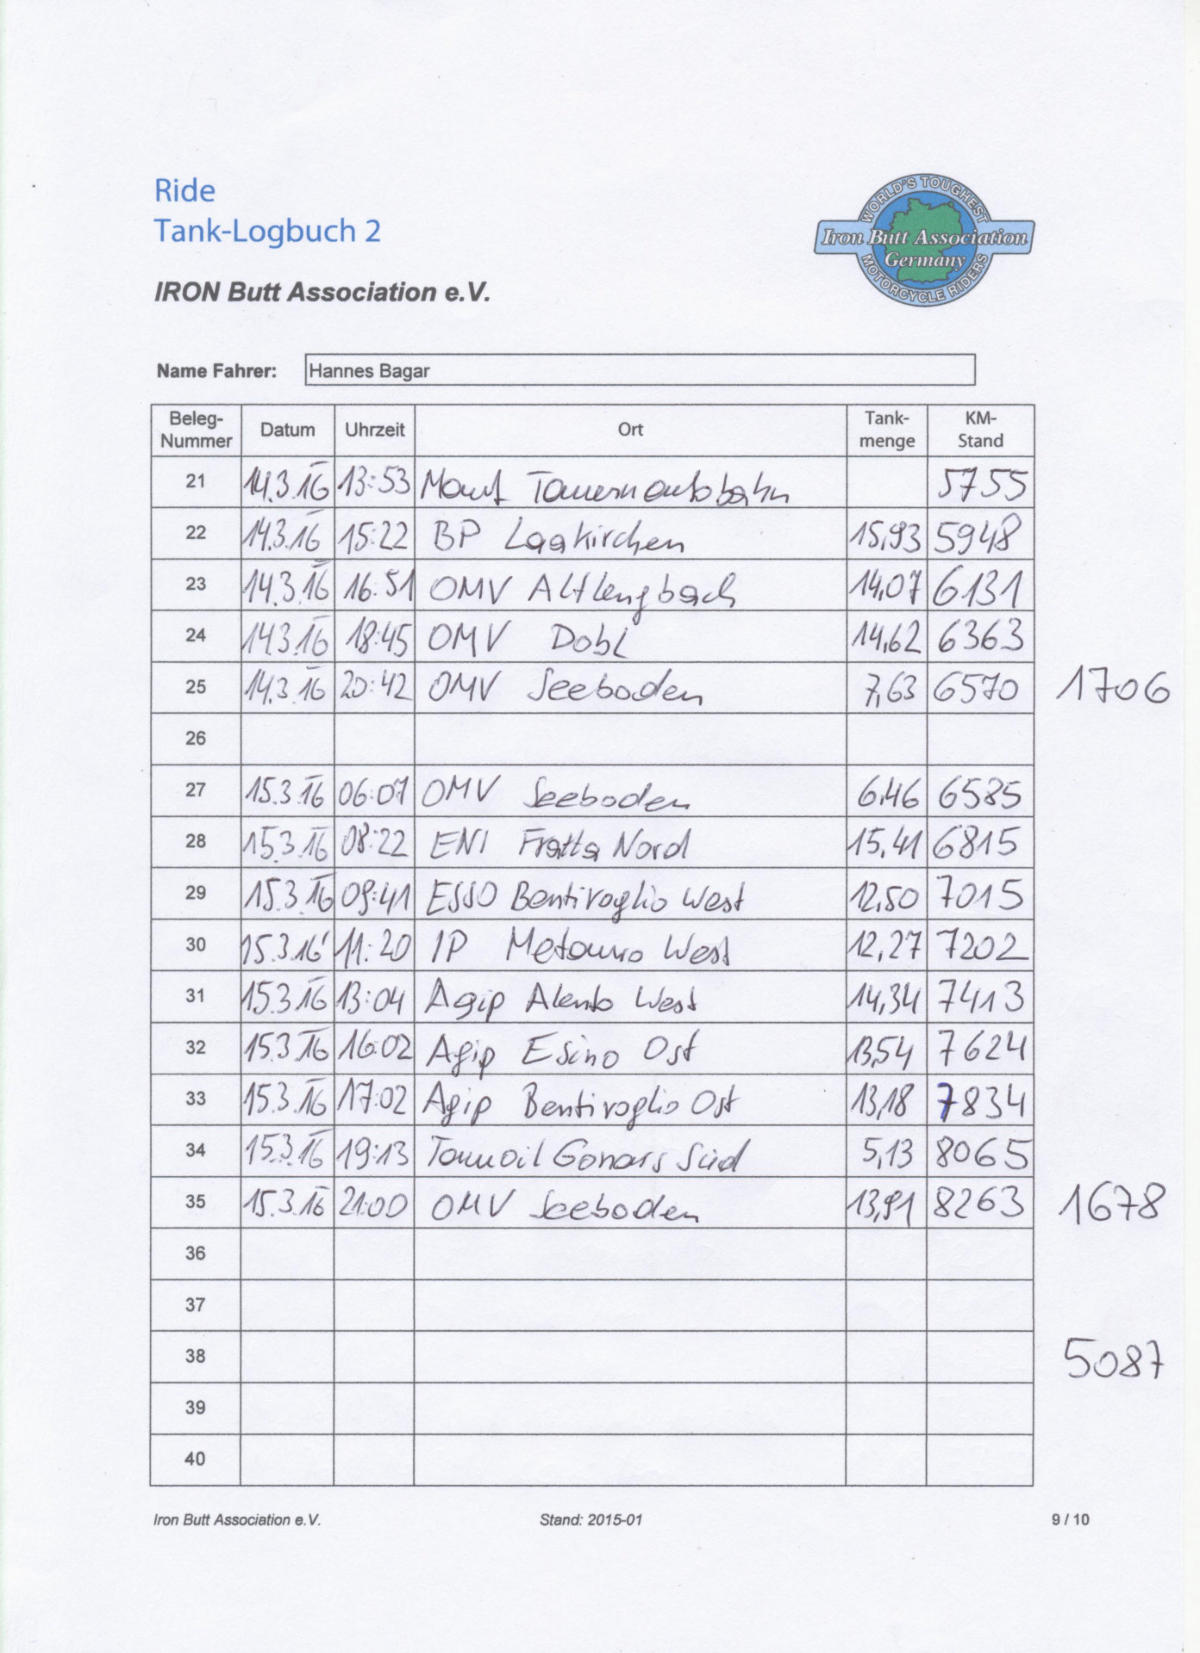 Ride
Tank-Logbuch 2
IRON Butt Association e.V.
WORLD'S TOUGHEST
Iron Butt Association
Germany
MOTORCYCLE RIDERS
Name Fahrer: Hannes Bagar
Beleg-Nummer Datum Uhrzeit Ort Tank-menge KM-Stand
21 14.3.16 13:53 Maut Tauernautobahn 5755
22 14.3.16 15:22 BP Laakirchen 15,93 5948
23 14.3.16 16:51 OMV Altlengbach 14,07 6131
24 14.3.16 18:45 OMV Dobl 14,62 6363
25 14.3.16 20:42 OMV Seeboden 7,63 6570 1706
26
27 15.3.16 06:07 OMV Seeboden 6,46 6585
28 15.3.16 08:22 ENI Fratta Nord 15,41 6815
29 15.3.16 09:41 ESSO Bentivoglio West 12,50 7015
30 15.3.16 11:20 IP Metauro West 12,27 7202
31 15.3.16 13:04 Agip Alento West 14,34 7413
32 15.3.16 16:02 Agip Esino Ost 13,54 7624
33 15.3.16 17:02 Agip Bentivoglio Ost 13,18 7834
34 15.3.16 19:13 Tamoil Gonars Süd 5,13 8065
35 15.3.16 21:00 OMV Seeboden 13,91 8263 1678
36
37
38 5087
39
40
Iron Butt Association e.V. Stand: 2015-01 9 / 10